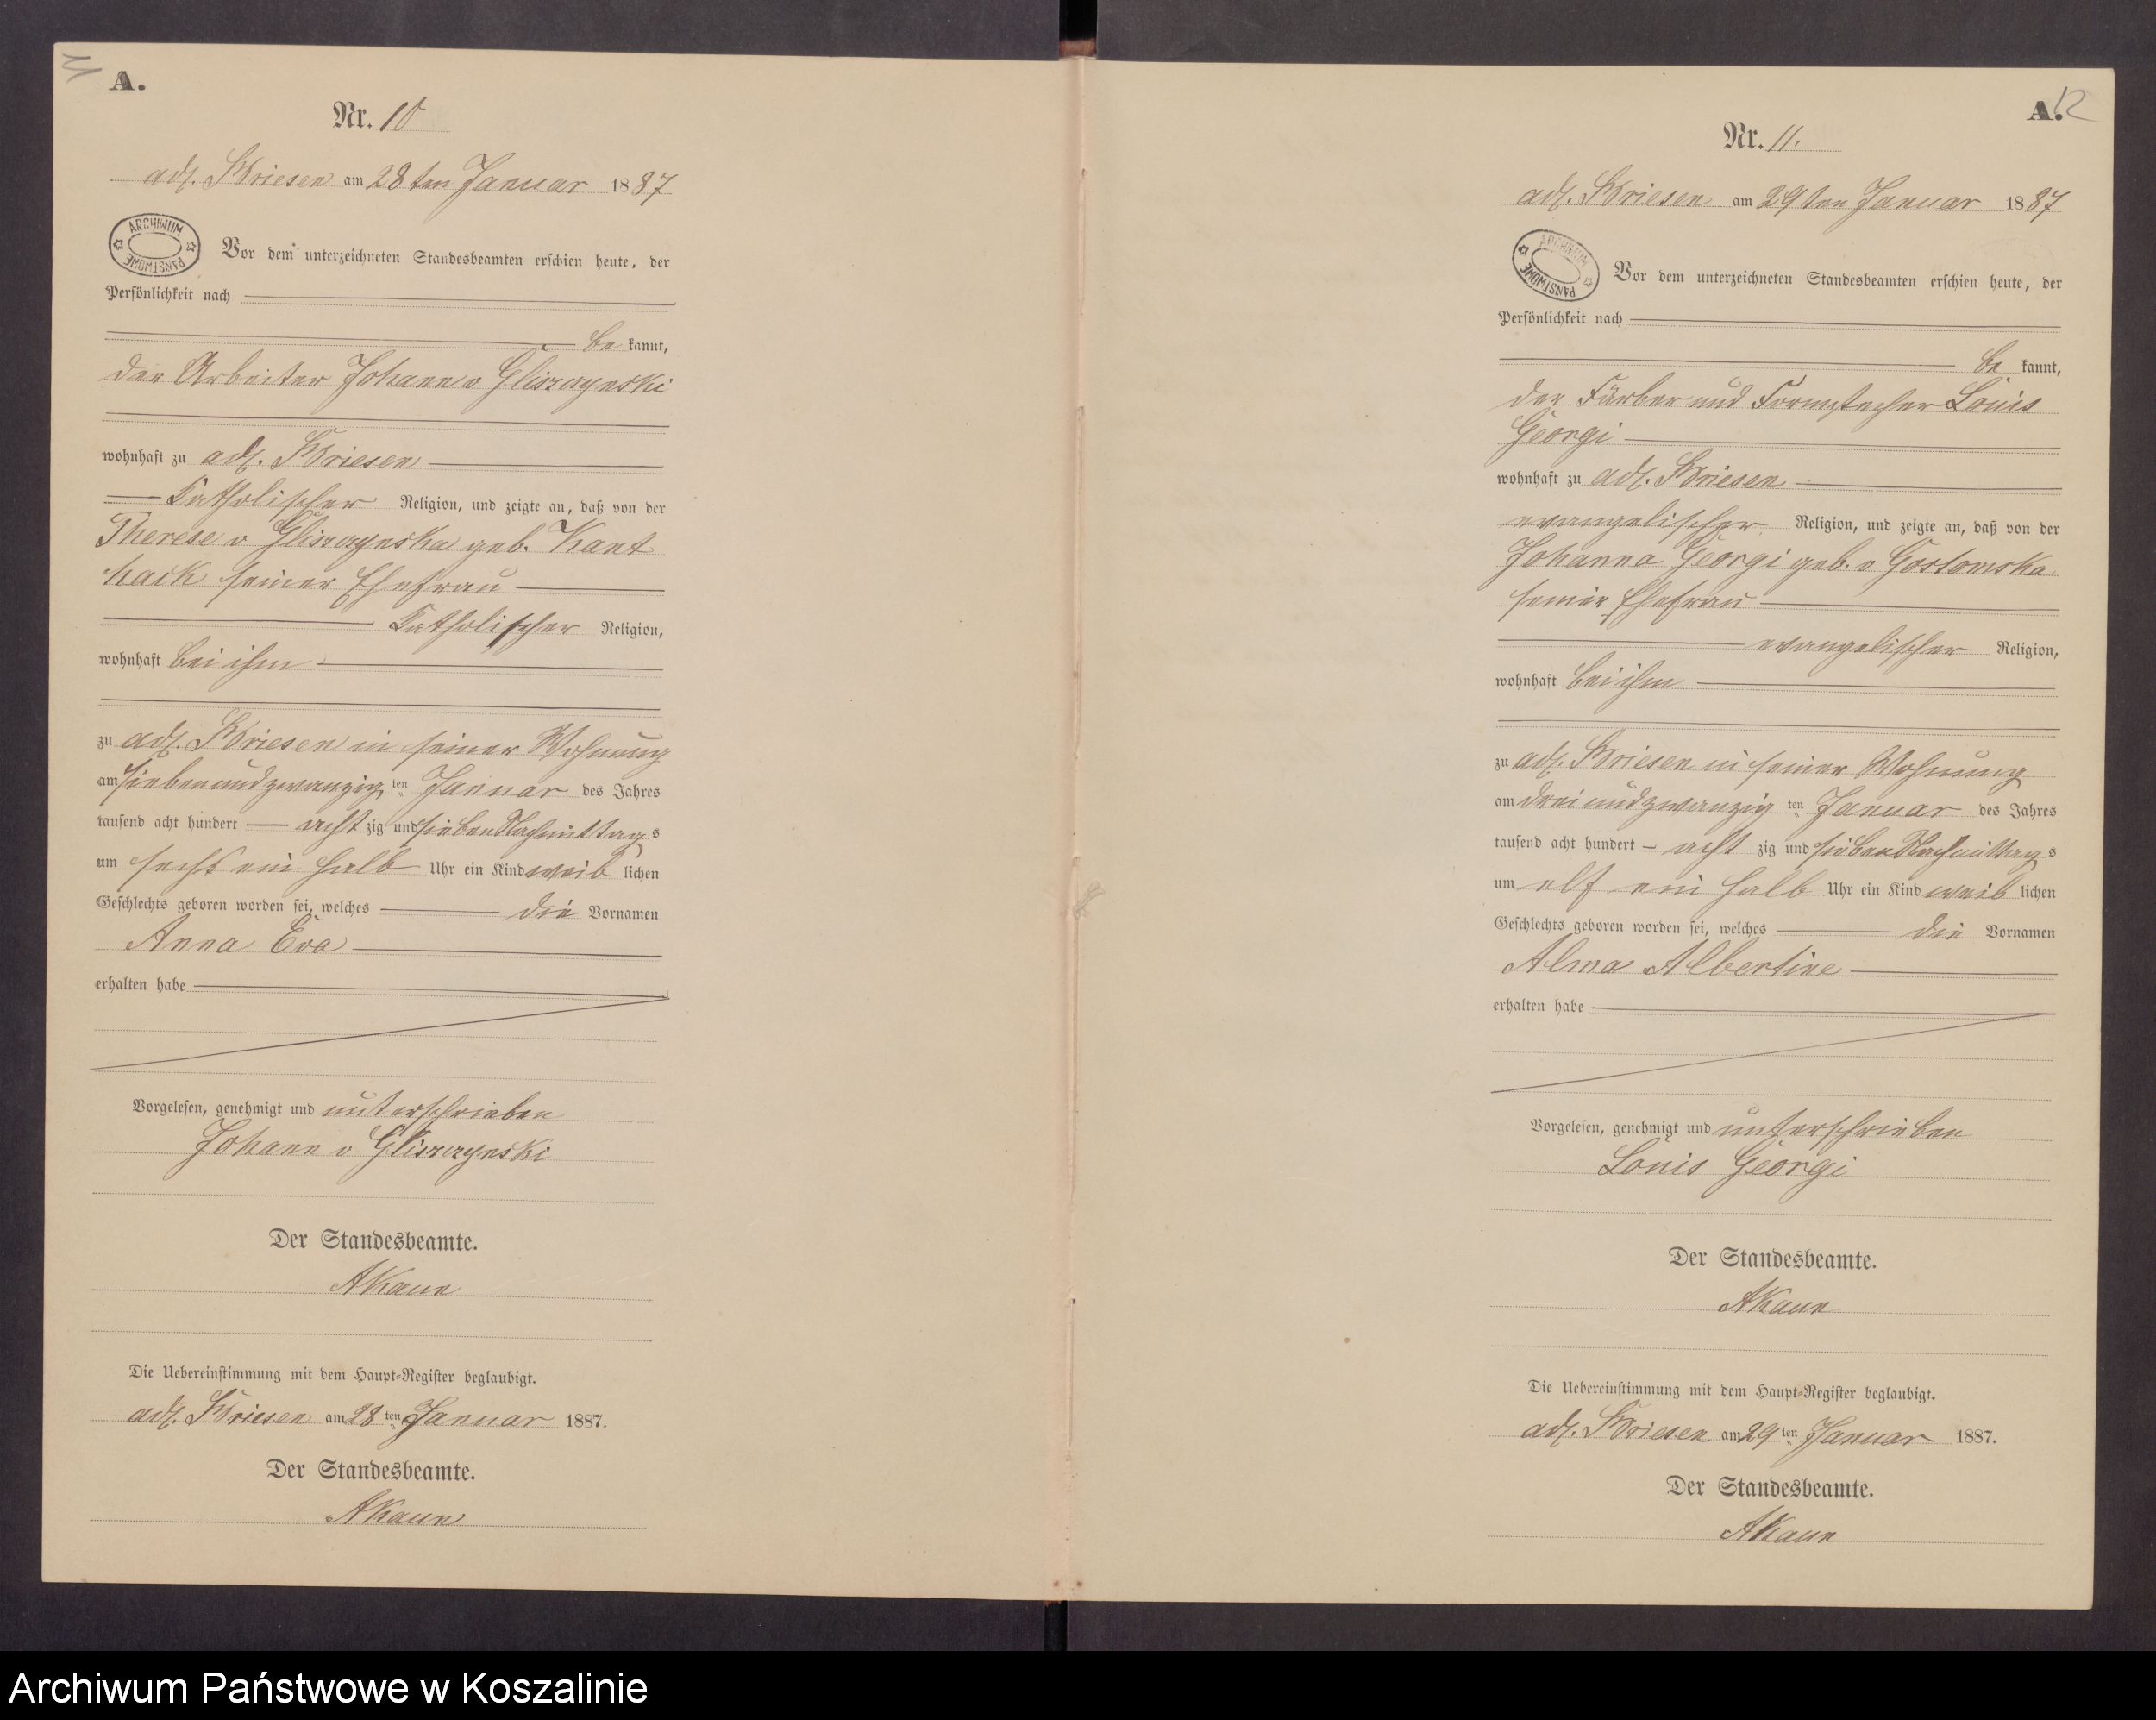 A.
Nr. 10
adl. Briesen am 28ten Januar 1887
ARCHIWUM PAŃSTWOWE
Vor dem unterzeichneten Standesbeamten erschien heute, der
Persönlichkeit nach
be kannt,
der Arbeiter Johann v Gliszczynski
wohnhaft zu adl. Briesen
Katholischer Religion, und zeigte an, daß von der
Therese v Gliszczynska geb. Kant
hack seiner Ehefrau
Katholischer Religion,
wohnhaft bei ihm
zu adl. Briesen in seiner Wohnung
am siebenundzwanzig ten Januar des Jahres
tausend acht hundert acht zig und sieben Nachmittags
um sechs ein halb Uhr ein Kind weib lichen
Geschlechts geboren worden sei, welches die Vornamen
Anna Eva
erhalten habe
Vorgelesen, genehmigt und unterschrieben
Johann v Gliszczynski
Der Standesbeamte.
AKaun
Die Uebereinstimmung mit dem Haupt-Register beglaubigt.
adl. Briesen am 28 ten Januar 1887.
Der Standesbeamte.
AKaun
A. 12
Nr. 11.
adl. Briesen am 29ten Januar 1887
ARCHIWUM PAŃSTWOWE
Vor dem unterzeichneten Standesbeamten erschien heute, der
Persönlichkeit nach
be kannt,
der Färber und Formstecher Louis
Georgi
wohnhaft zu adl. Briesen
evangelischer Religion, und zeigte an, daß von der
Johanna Georgi geb. v Gostomska
seiner Ehefrau
evangelischer Religion,
wohnhaft bei ihm
zu adl. Briesen in seiner Wohnung
am dreiundzwanzig ten Januar des Jahres
tausend acht hundert acht zig und sieben Nachmittags
um elf ein halb Uhr ein Kind weib lichen
Geschlechts geboren worden sei, welches die Vornamen
Alma Albertine
erhalten habe
Vorgelesen, genehmigt und unterschrieben
Louis Georgi
Der Standesbeamte.
AKaun
Die Uebereinstimmung mit dem Haupt-Register beglaubigt.
adl. Briesen am 29 ten Januar 1887.
Der Standesbeamte.
AKaun
Archiwum Państwowe w Koszalinie